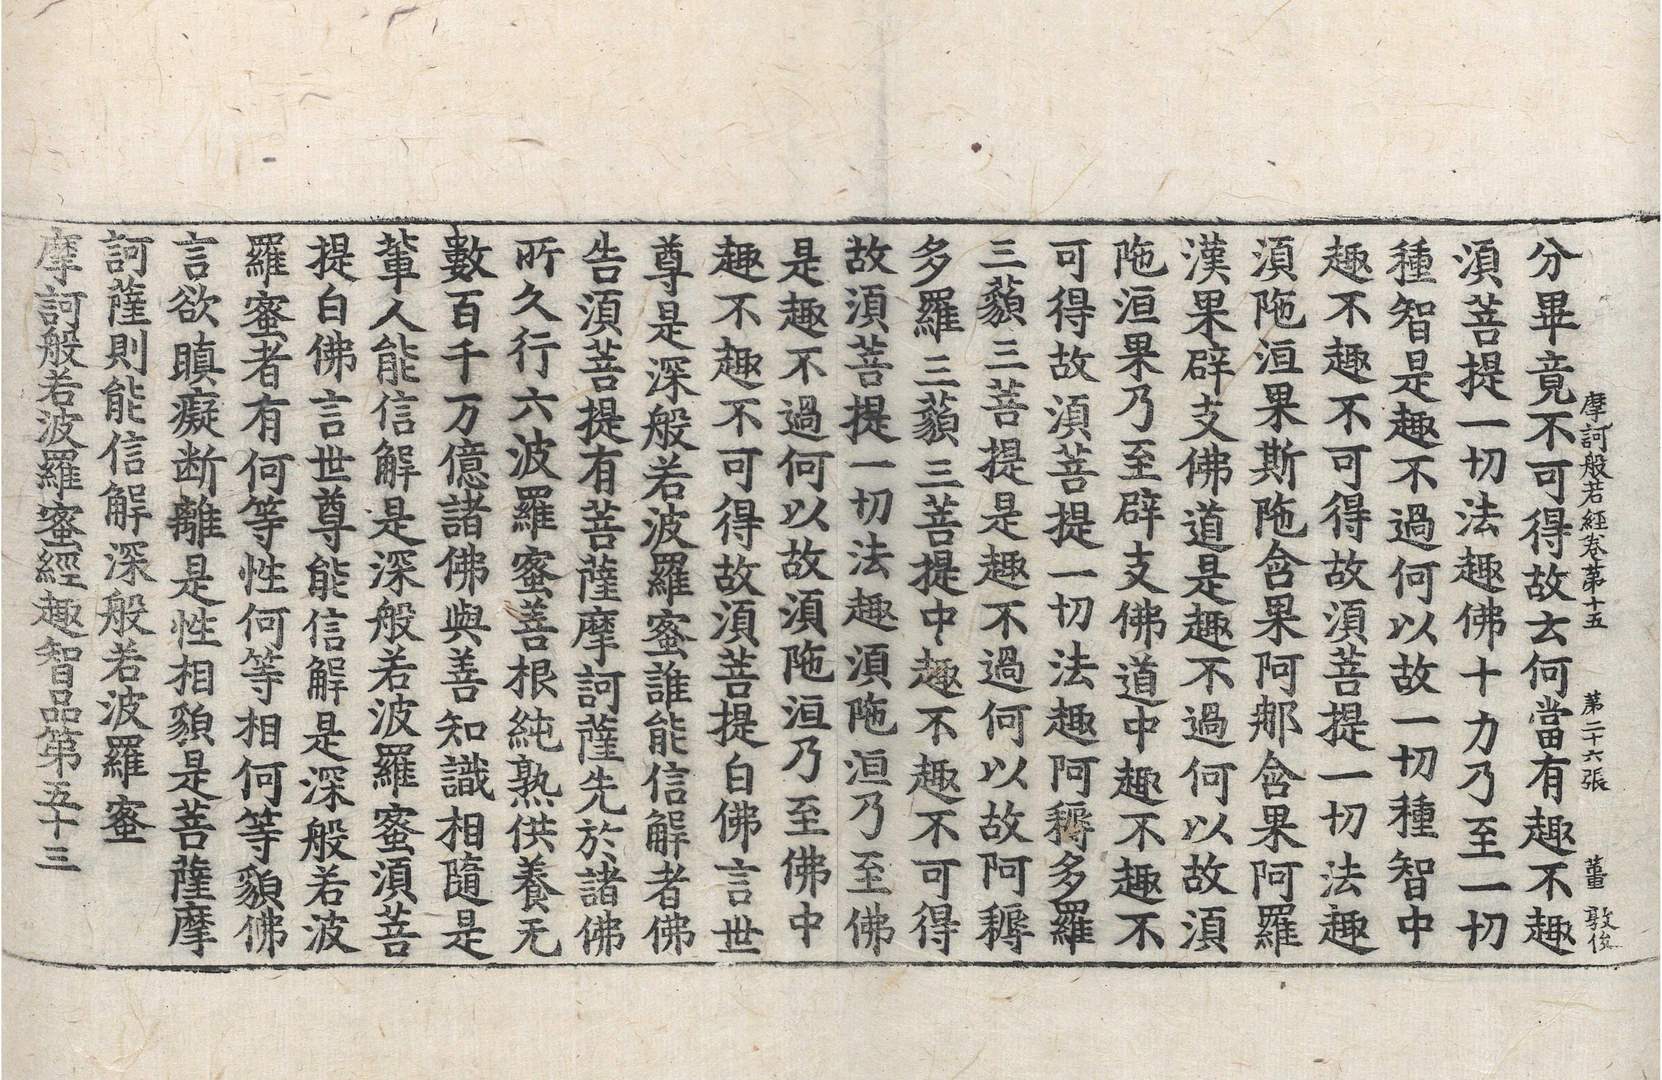 摩訶般若經卷第十五 第二十六張 董 敦俊
分畢竟不可得故云何當有趣不趣
須菩提一切法趣佛十力乃至一切
種智是趣不過何以故一切種智中
趣不趣不可得故須菩提一切法趣
須陁洹果斯陁含果阿那含果阿羅
漢果辟支佛道是趣不過何以故須
陁洹果乃至辟支佛道中趣不趣不
可得故須菩提一切法趣阿耨多羅
三藐三菩提是趣不過何以故阿耨
多羅三藐三菩提中趣不趣不可得
故須菩提一切法趣須陁洹乃至佛
是趣不過何以故須陁洹乃至佛中
趣不趣不可得故須菩提白佛言世
尊是深般若波羅蜜誰能信解者佛
告須菩提有菩薩摩訶薩先於諸佛
所久行六波羅蜜善根純熟供養无
數百千万億諸佛與善知識相隨是
輩人能信解是深般若波羅蜜須菩
提白佛言世尊能信解是深般若波
羅蜜者有何等性何等相何等貌佛
言欲瞋癡断離是性相貌是菩薩摩
訶薩則能信解深般若波羅蜜
摩訶般若波羅蜜經趣智品第五十三